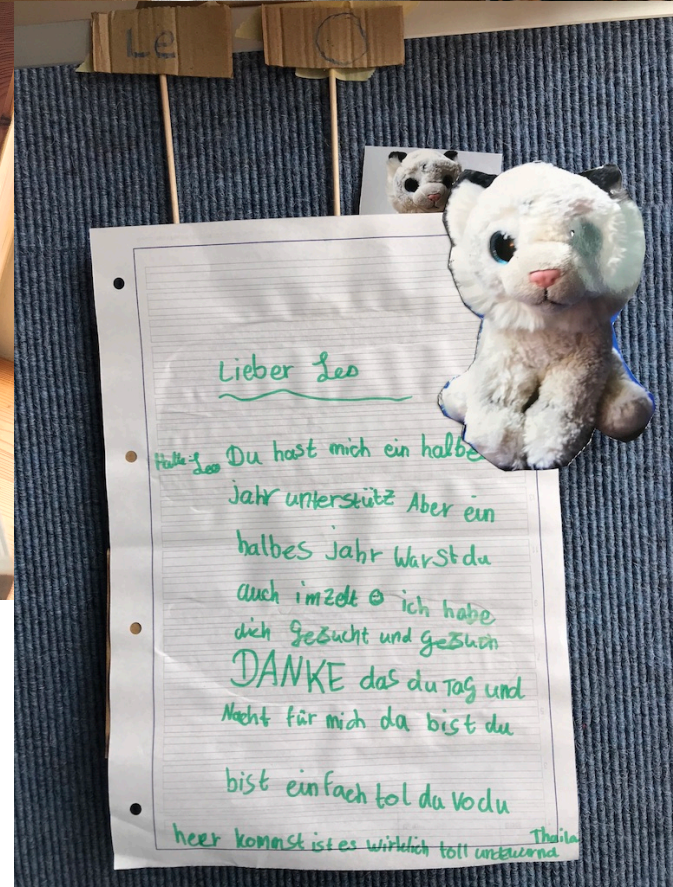 Le O
Lieber Leo
Hallo Leo Du hast mich ein halbe
jahr unterstütz Aber ein
halbes jahr warst du
auch im zelt ich habe
dich gesucht und gesuch
DANKE das du Tag und
Nacht für mich da bist du
bist einfach tol da vo du
heer kommst ist es wirklich toll und
Thaila